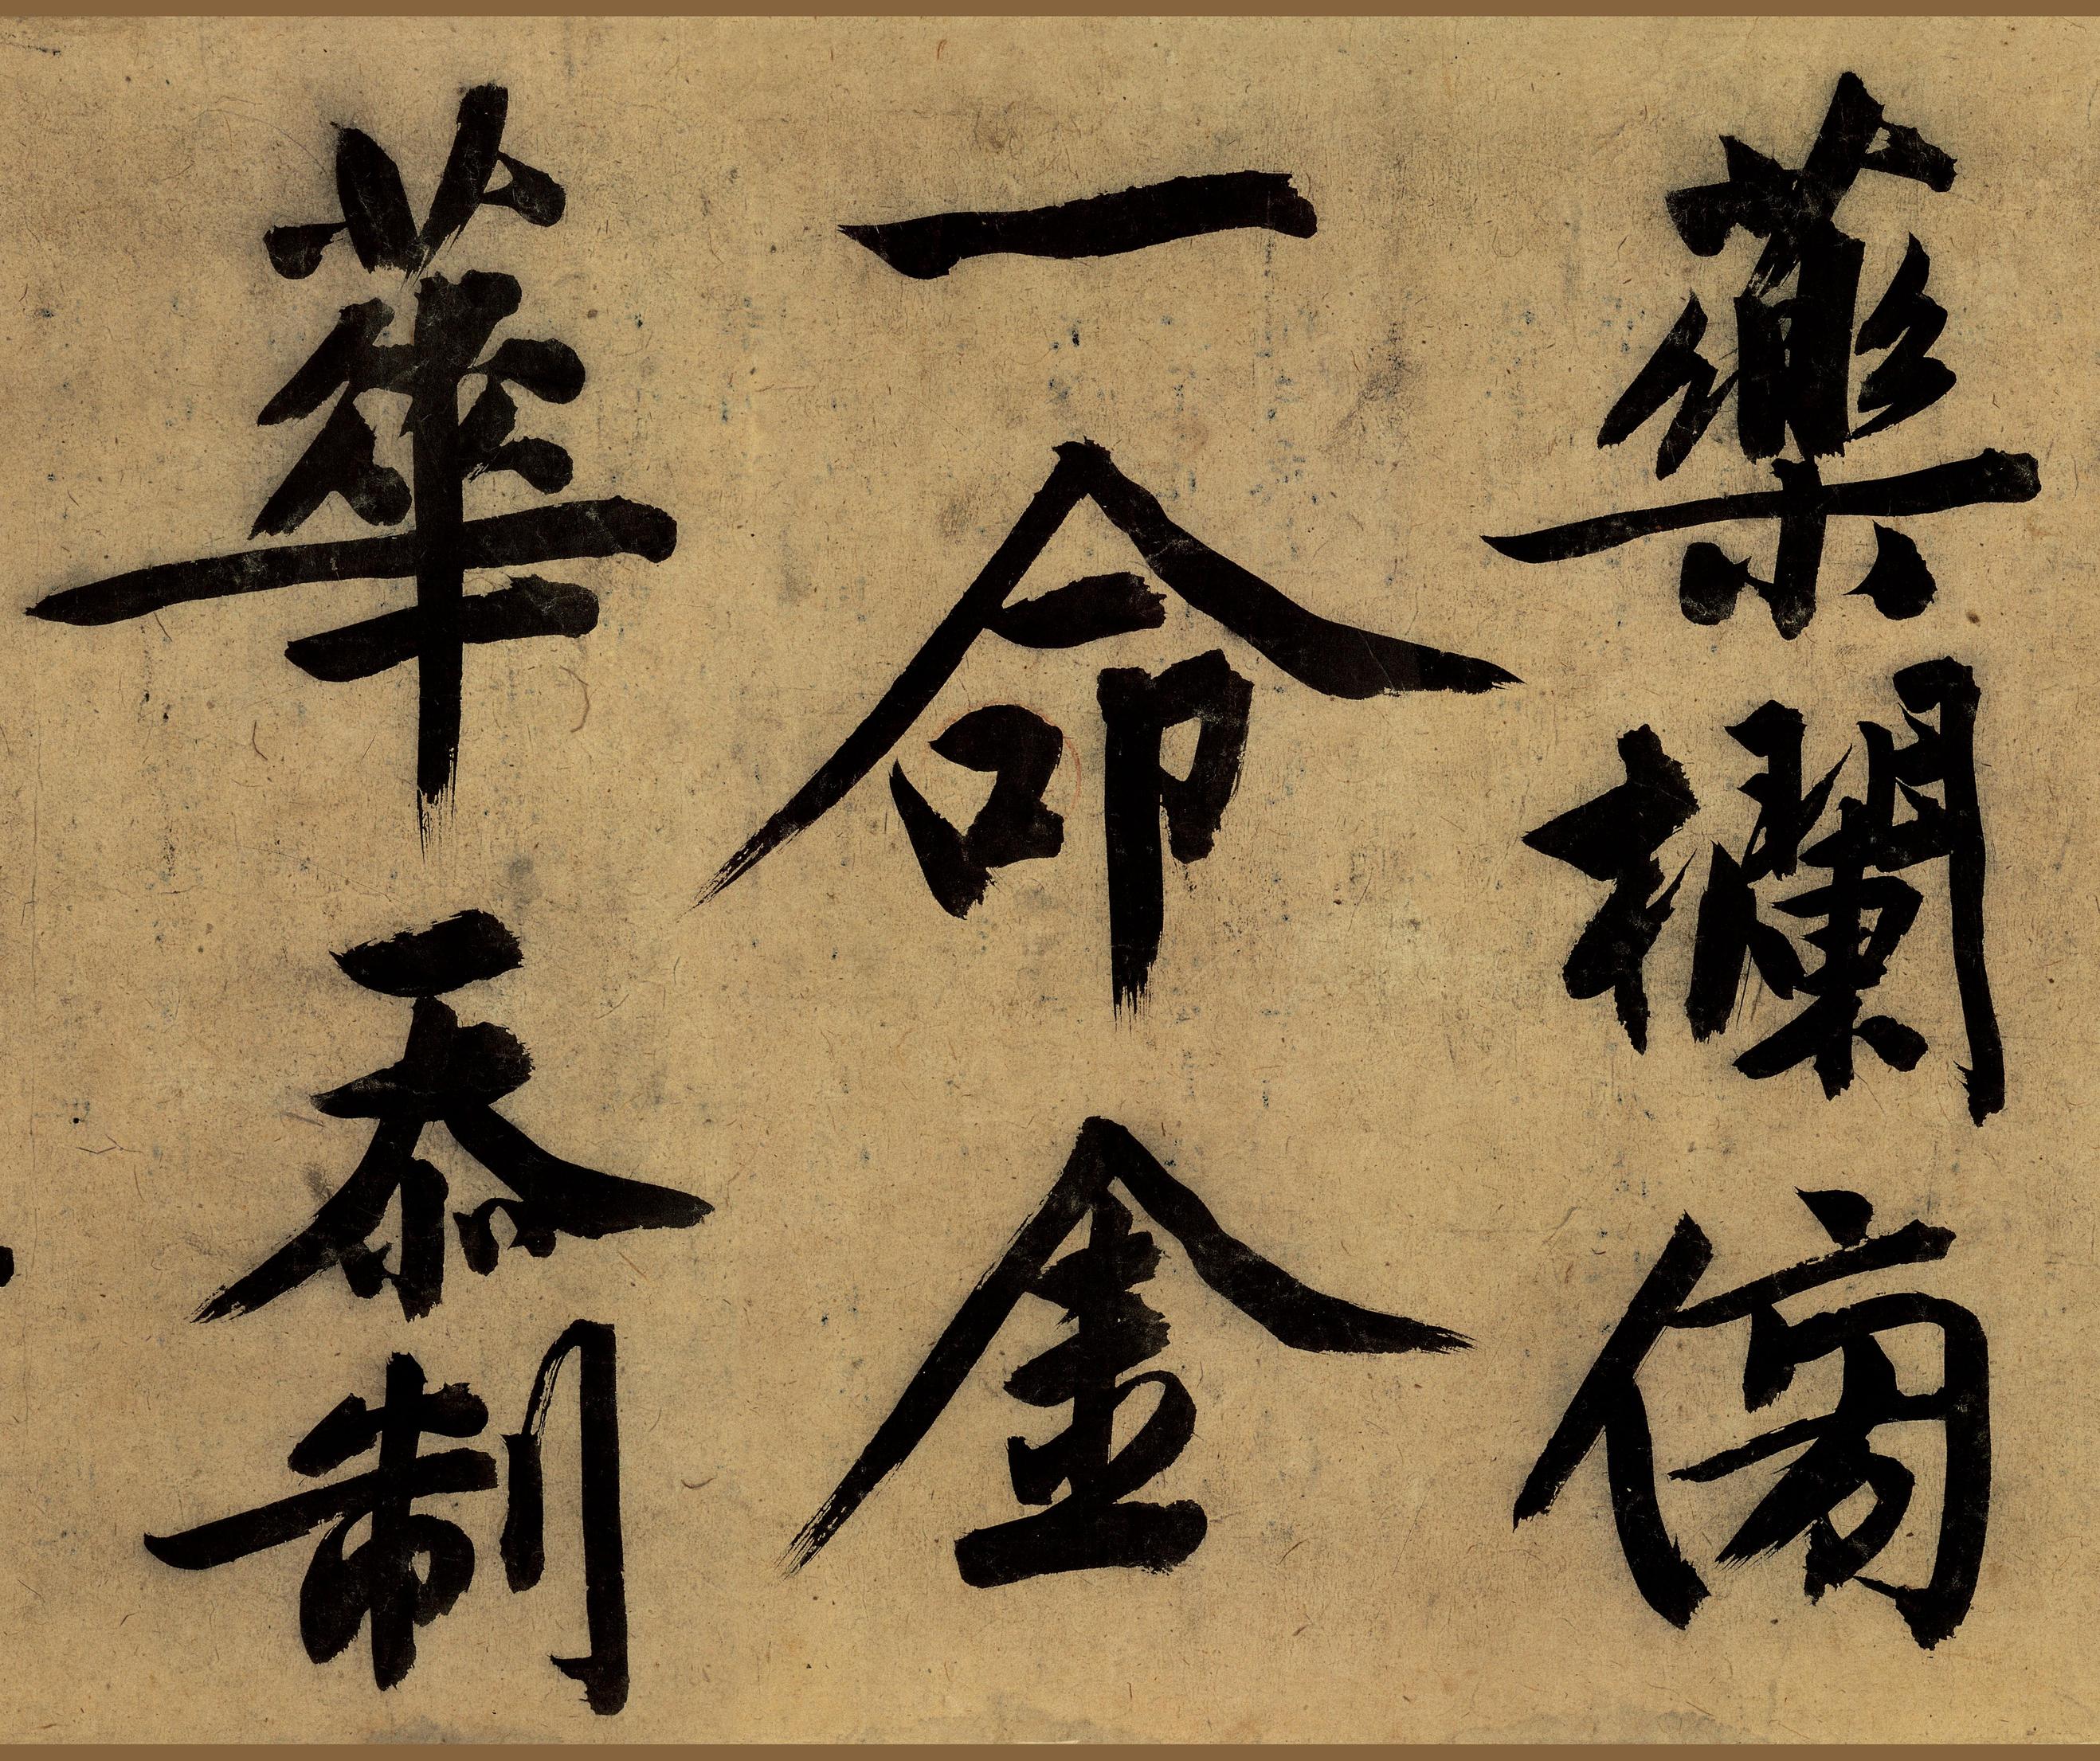 藥欄傍
一命金
華忝制